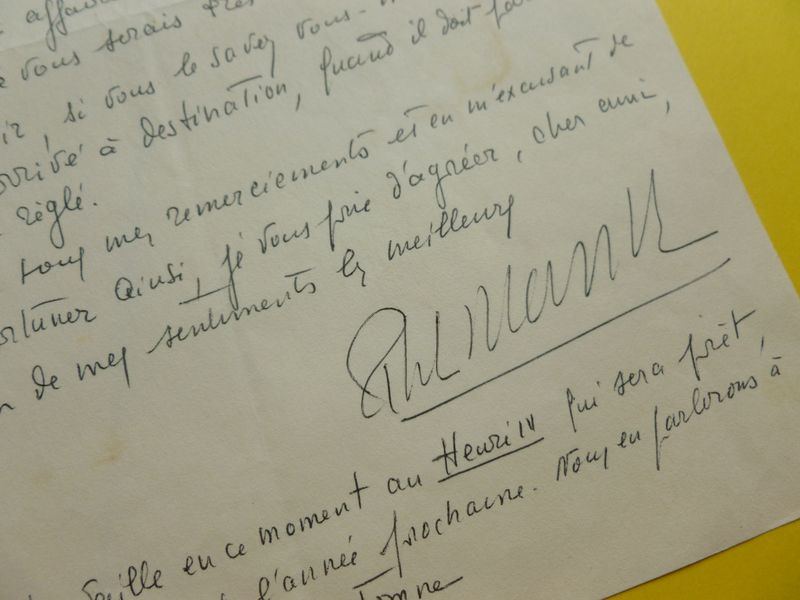 affaire
vous serais très
si vous le savez vous-m
arrivé à destination, quand il doit
réglé.
tous mes remerciements et en m'excusant de
ortuner ainsi, je vous prie d'agréer, cher ami,
de mes sentiments les meilleurs
en ce moment au Henri IV qui sera prêt,
l'année prochaine. Nous en parlerons à